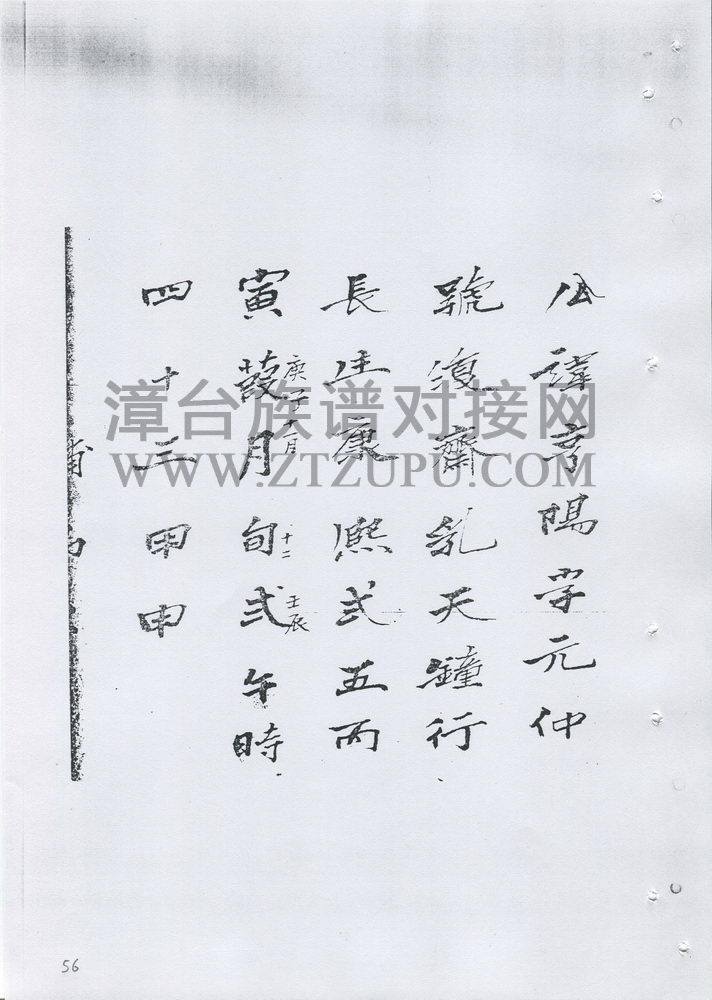 公諱亨陽字元仲
號復齋乳天鐘行
長生康熙弍五丙
寅葭月旬弍午時
庚子十月
十二
壬辰
四十三甲申
漳台族谱对接网
WWW.ZTZUPU.COM
56